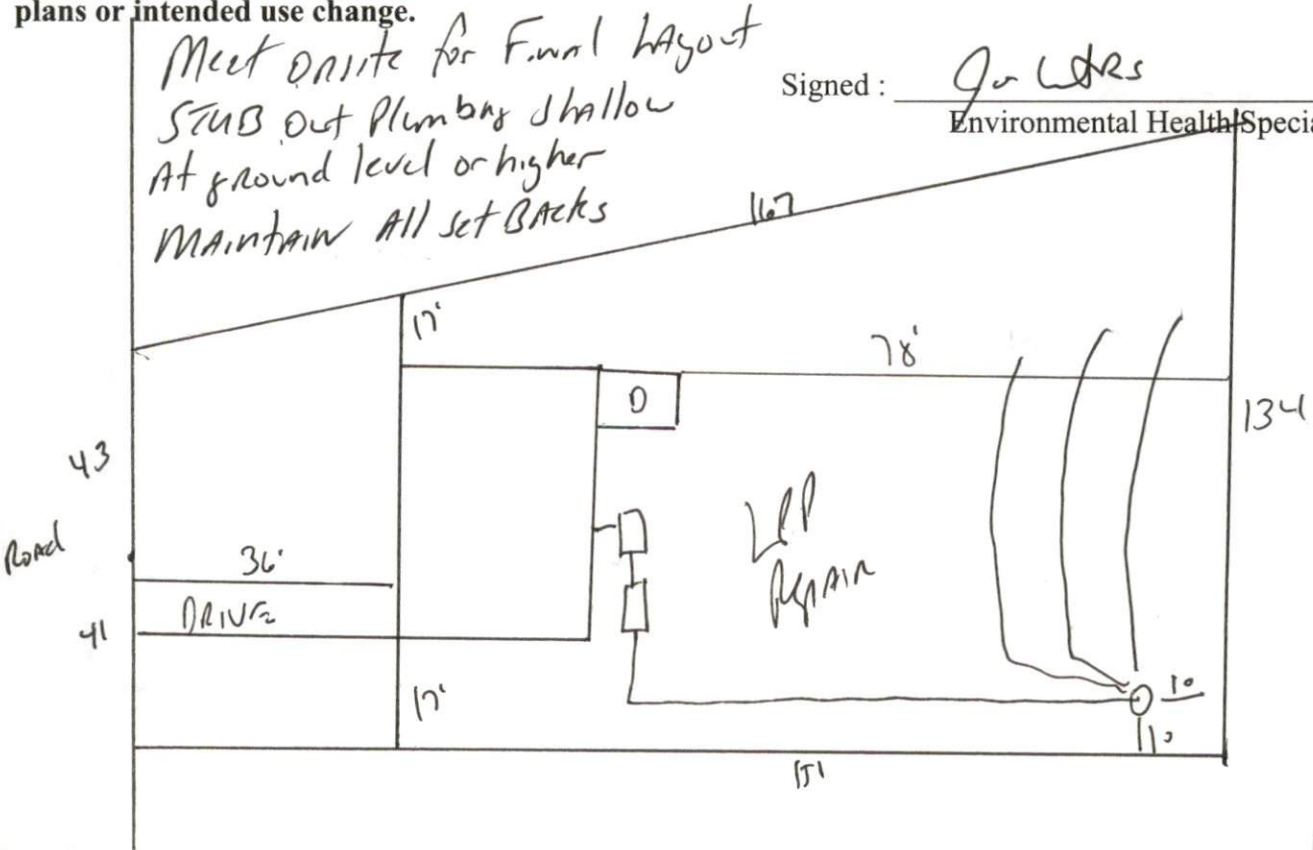 plans or intended use change.
Meet Onsite for Final Layout
STUB Out Plumbing Shallow
At ground level or higher
MAINTAIN All Set BACKs
Signed :
Environmental Health Specia
167
17'
78'
D
134
43
Road
36'
DRIVE
41
LPP
REPAIR
17'
10
10
151